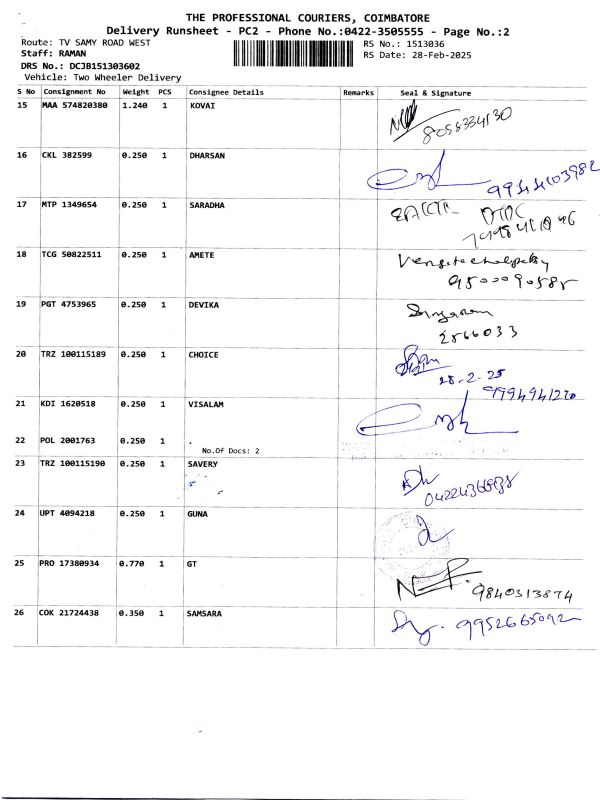 THE PROFESSIONAL COURIERS, COIMBATORE
Delivery Runsheet - PC2 - Phone No.:0422-3505555 - Page No.:2
Route: TV SAMY ROAD WEST RS No.: 1513036
Staff: RAMAN RS Date: 28-Feb-2025
DRS No.: DCJB151303602
Vehicle: Two Wheeler Delivery
S No Consignment No Weight PCS Consignee Details Remarks Seal & Signature
15 MAA 574820380 1.240 1 KOVAI
16 CKL 382599 0.250 1 DHARSAN
9944103982
17 MTP 1349654 0.250 1 SARADHA
18 TCG 50822511 0.250 1 AMETE
19 PGT 4753965 0.250 1 DEVIKA
2566033
20 TRZ 100115189 0.250 1 CHOICE
28-2-25
9994941270
21 KDI 1620518 0.250 1 VISALAM
22 POL 2001763 0.250 1 .
No.Of Docs: 2
23 TRZ 100115190 0.250 1 SAVERY
24 UPT 4094218 0.250 1 GUNA
25 PRO 17380934 0.770 1 GT
9840313874
26 COK 21724438 0.350 1 SAMSARA
9952665092